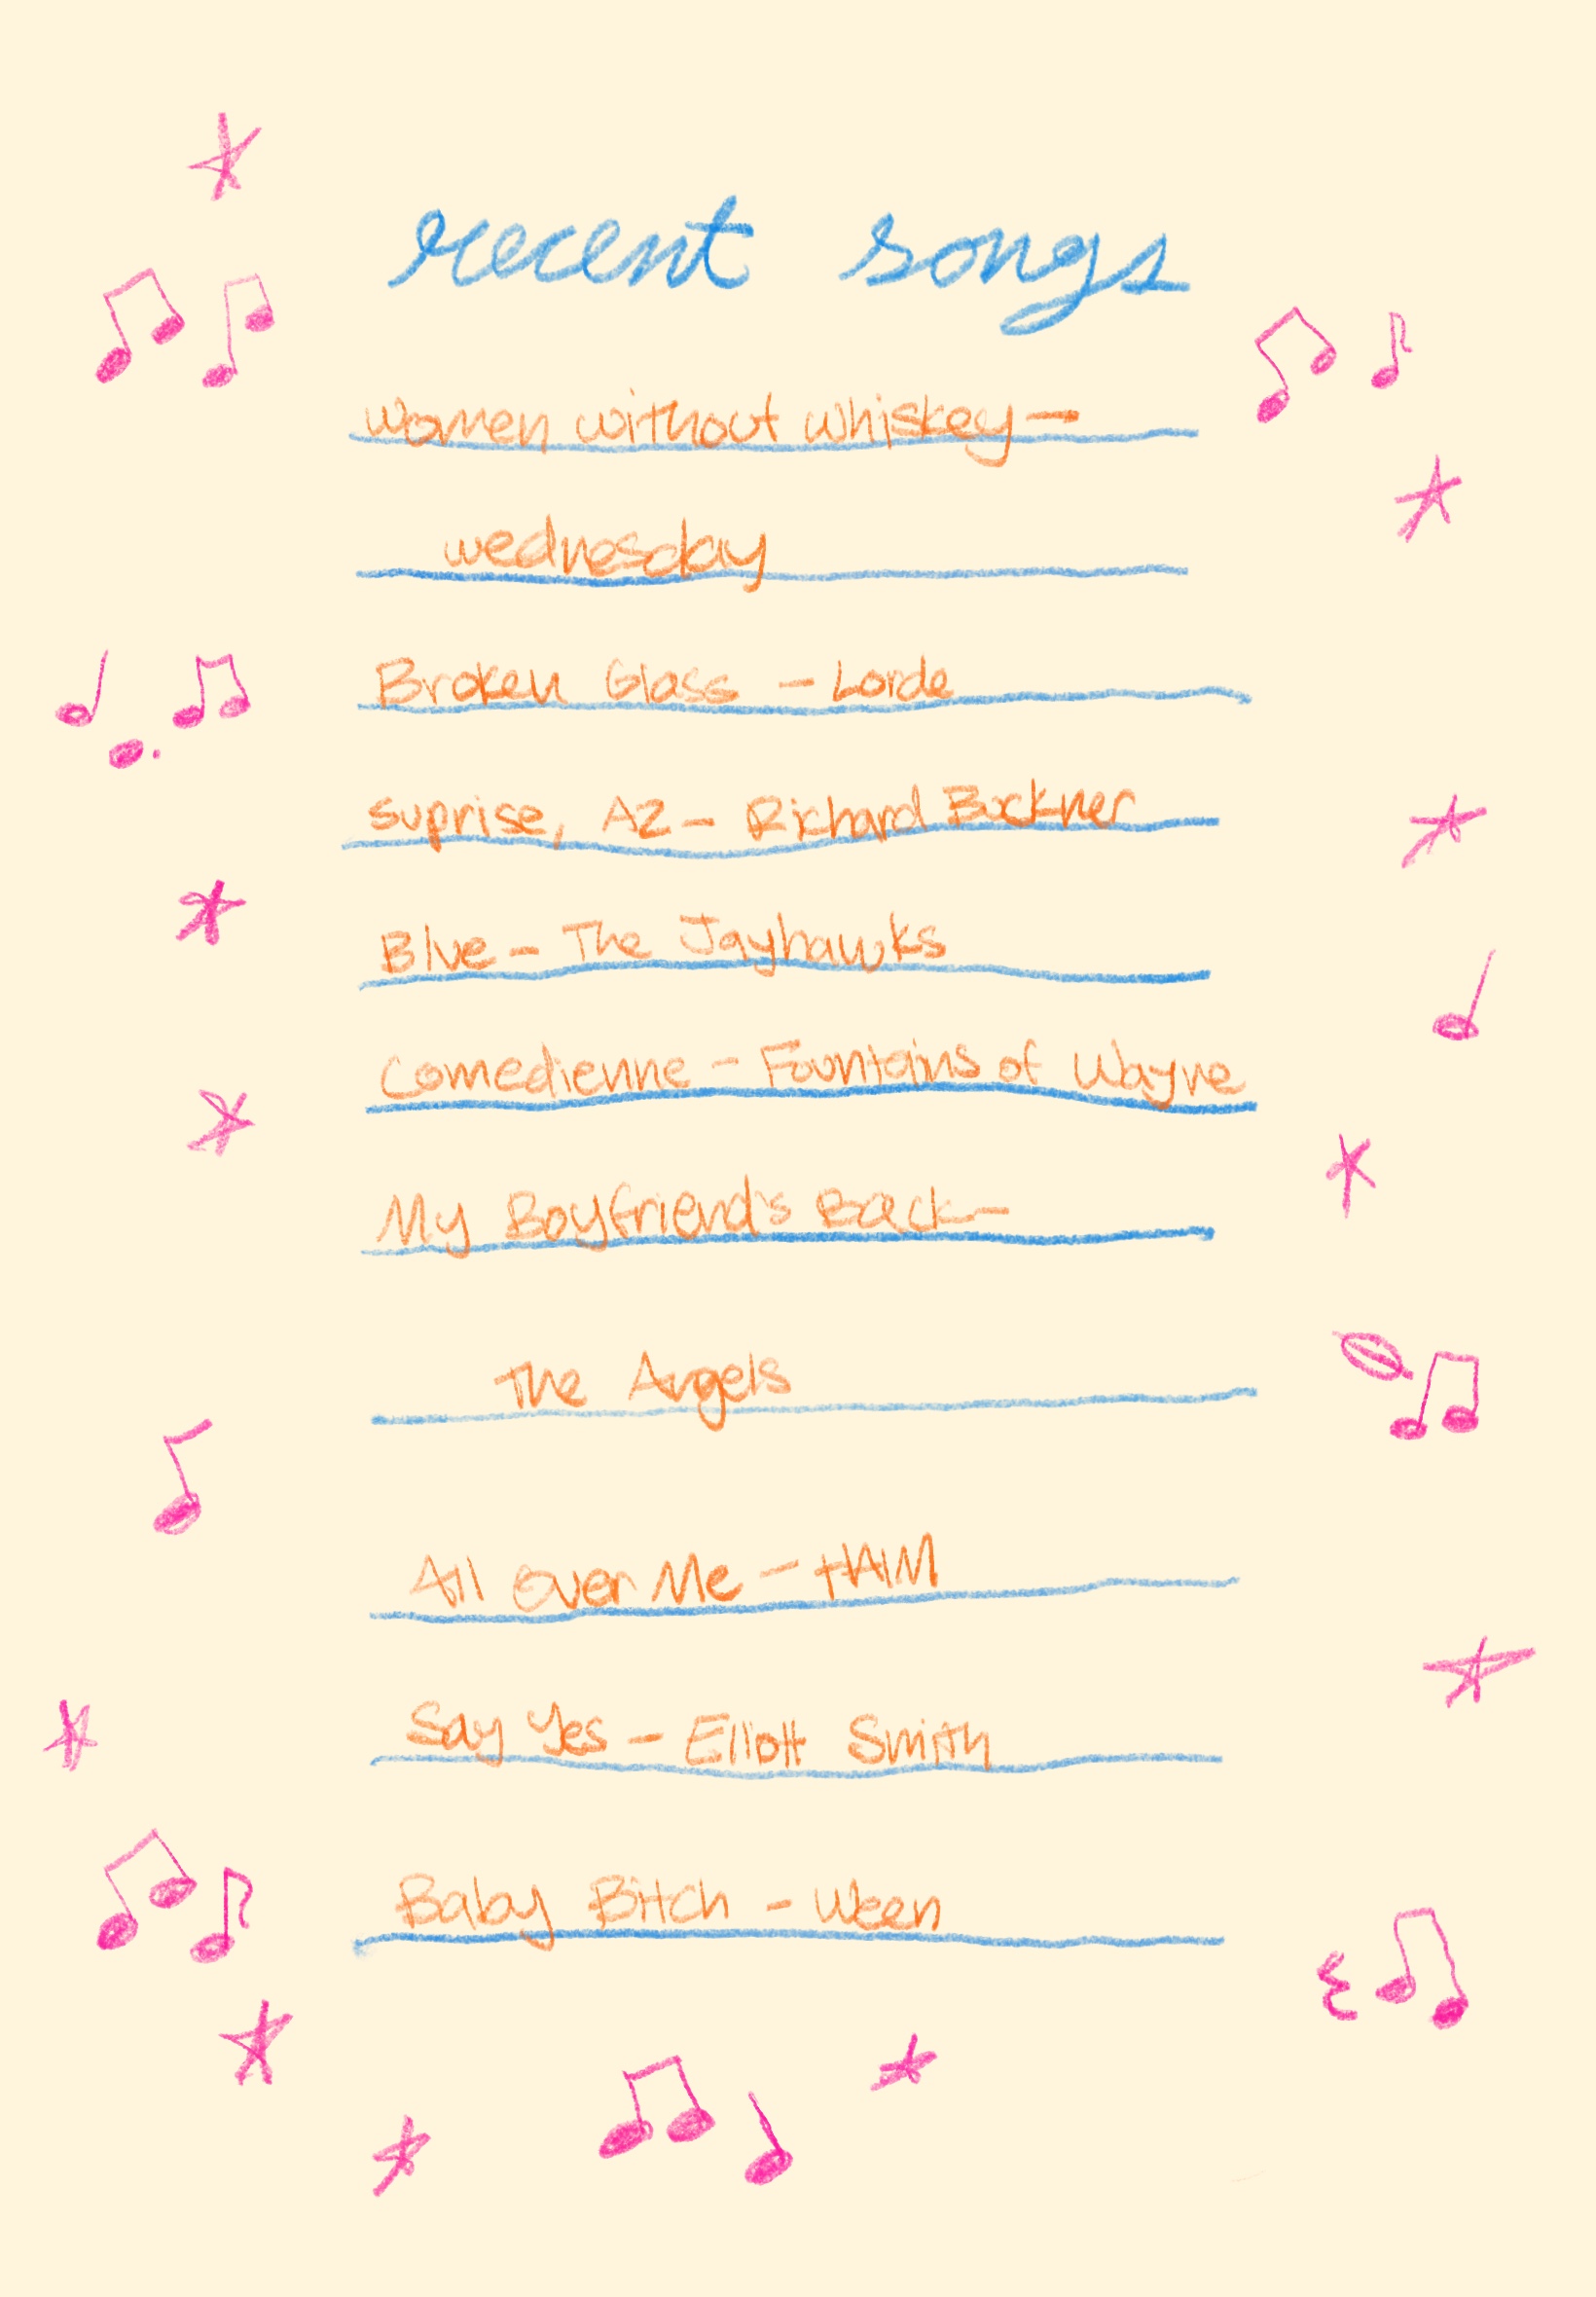 recent songs
women without whiskey –
wednesday
Broken Glass – Lorde
suprise, AZ – Richard Buckner
Blue – The Jayhawks
Comedienne – Fountains of Wayne
My Boyfriend's Back –
The Angels
All Over Me – HAIM
Say Yes – Elliott Smith
Baby Bitch – Ween